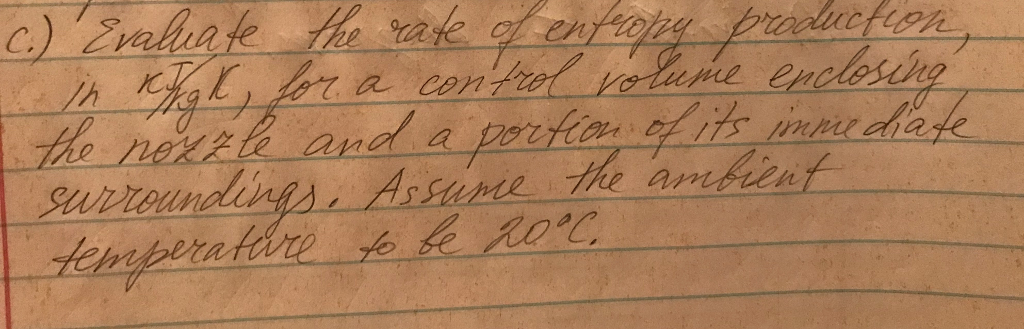 c.) Evaluate the rate of entropy production,
in KJ/kgK, for a control volume enclosing
the nozzle and a portion of its immediate
surroundings. Assume the ambient
temperature to be 20°C.